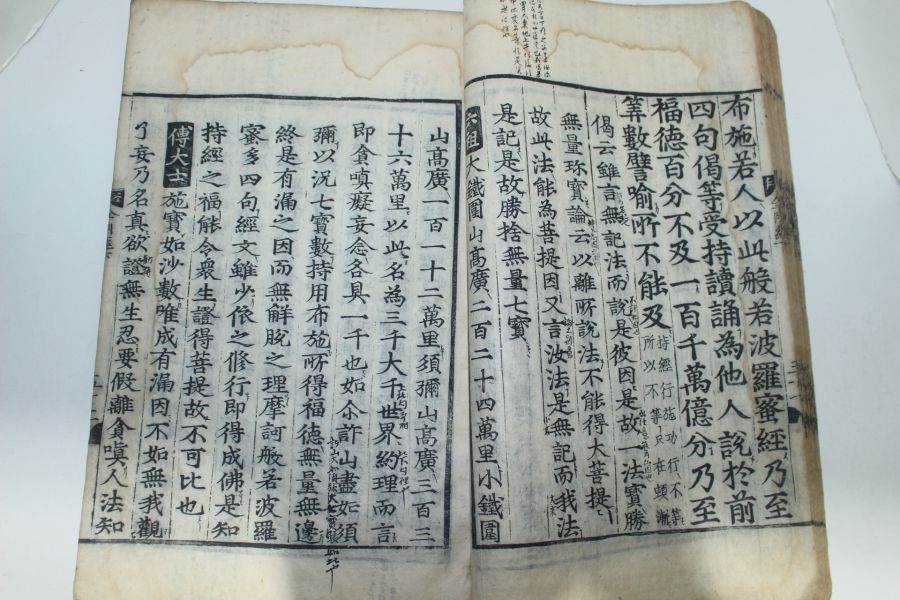 布施若人以此般若波羅蜜經乃至
四句偈等受持讀誦為他人說於前
福德百分不及一百千萬億分乃至
筭數譬喻所不能及持經行施功行不等
所以不等只在頓漸
偈云雖言無記法而說是彼因是故一法寶勝
無量珎寶論云以離所說法不能得大菩提
故此法能為菩提因又言汝法是無記而我法
是記是故勝捨無量七寶
六祖大鐵圍山髙廣二百二十四萬里小鐵圍
山髙廣一百一十二萬里須彌山髙廣三百三
十六萬里以此名為三千大千世界約理而言
即貪嗔癡妄念各具一千也如尒許山盡如須
彌以況七寶數持用布施所得福德無量無邊
終是有漏之因而無解脫之理摩訶般若波羅
蜜多四句經文雖少依之修行即得成佛是知
持經之福能令衆生證得菩提故不可比也
傅大士施寶如沙數唯成有漏因不如無我觀
了妄乃名真欲證無生忍要假離貪嗔人法知